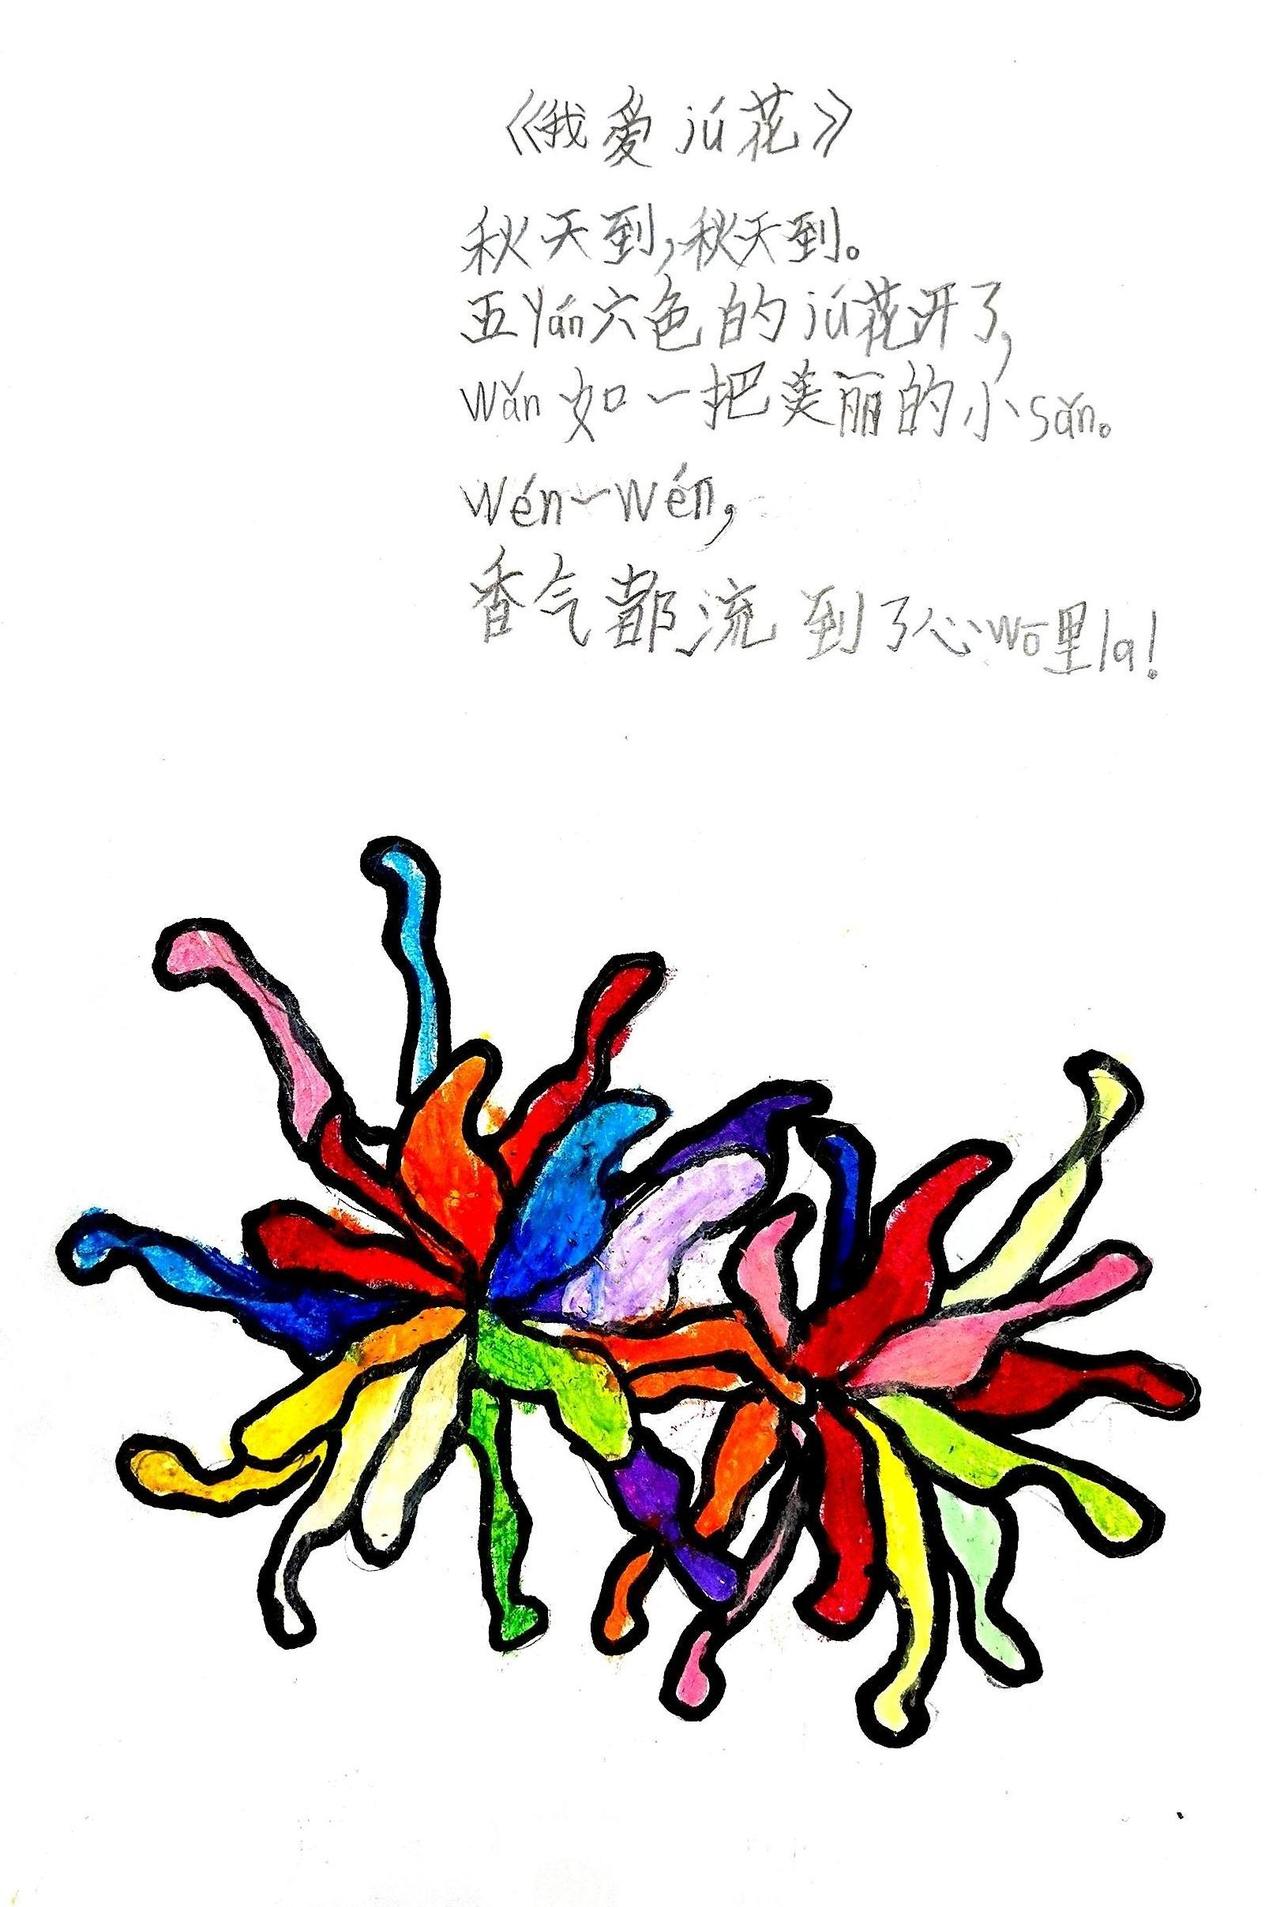 《我爱jú花》
秋天到,秋天到。
五yán六色的jú花开了,
wǎn如一把美丽的小sǎn。
wén一wén,
香气都流到了心wō里la!